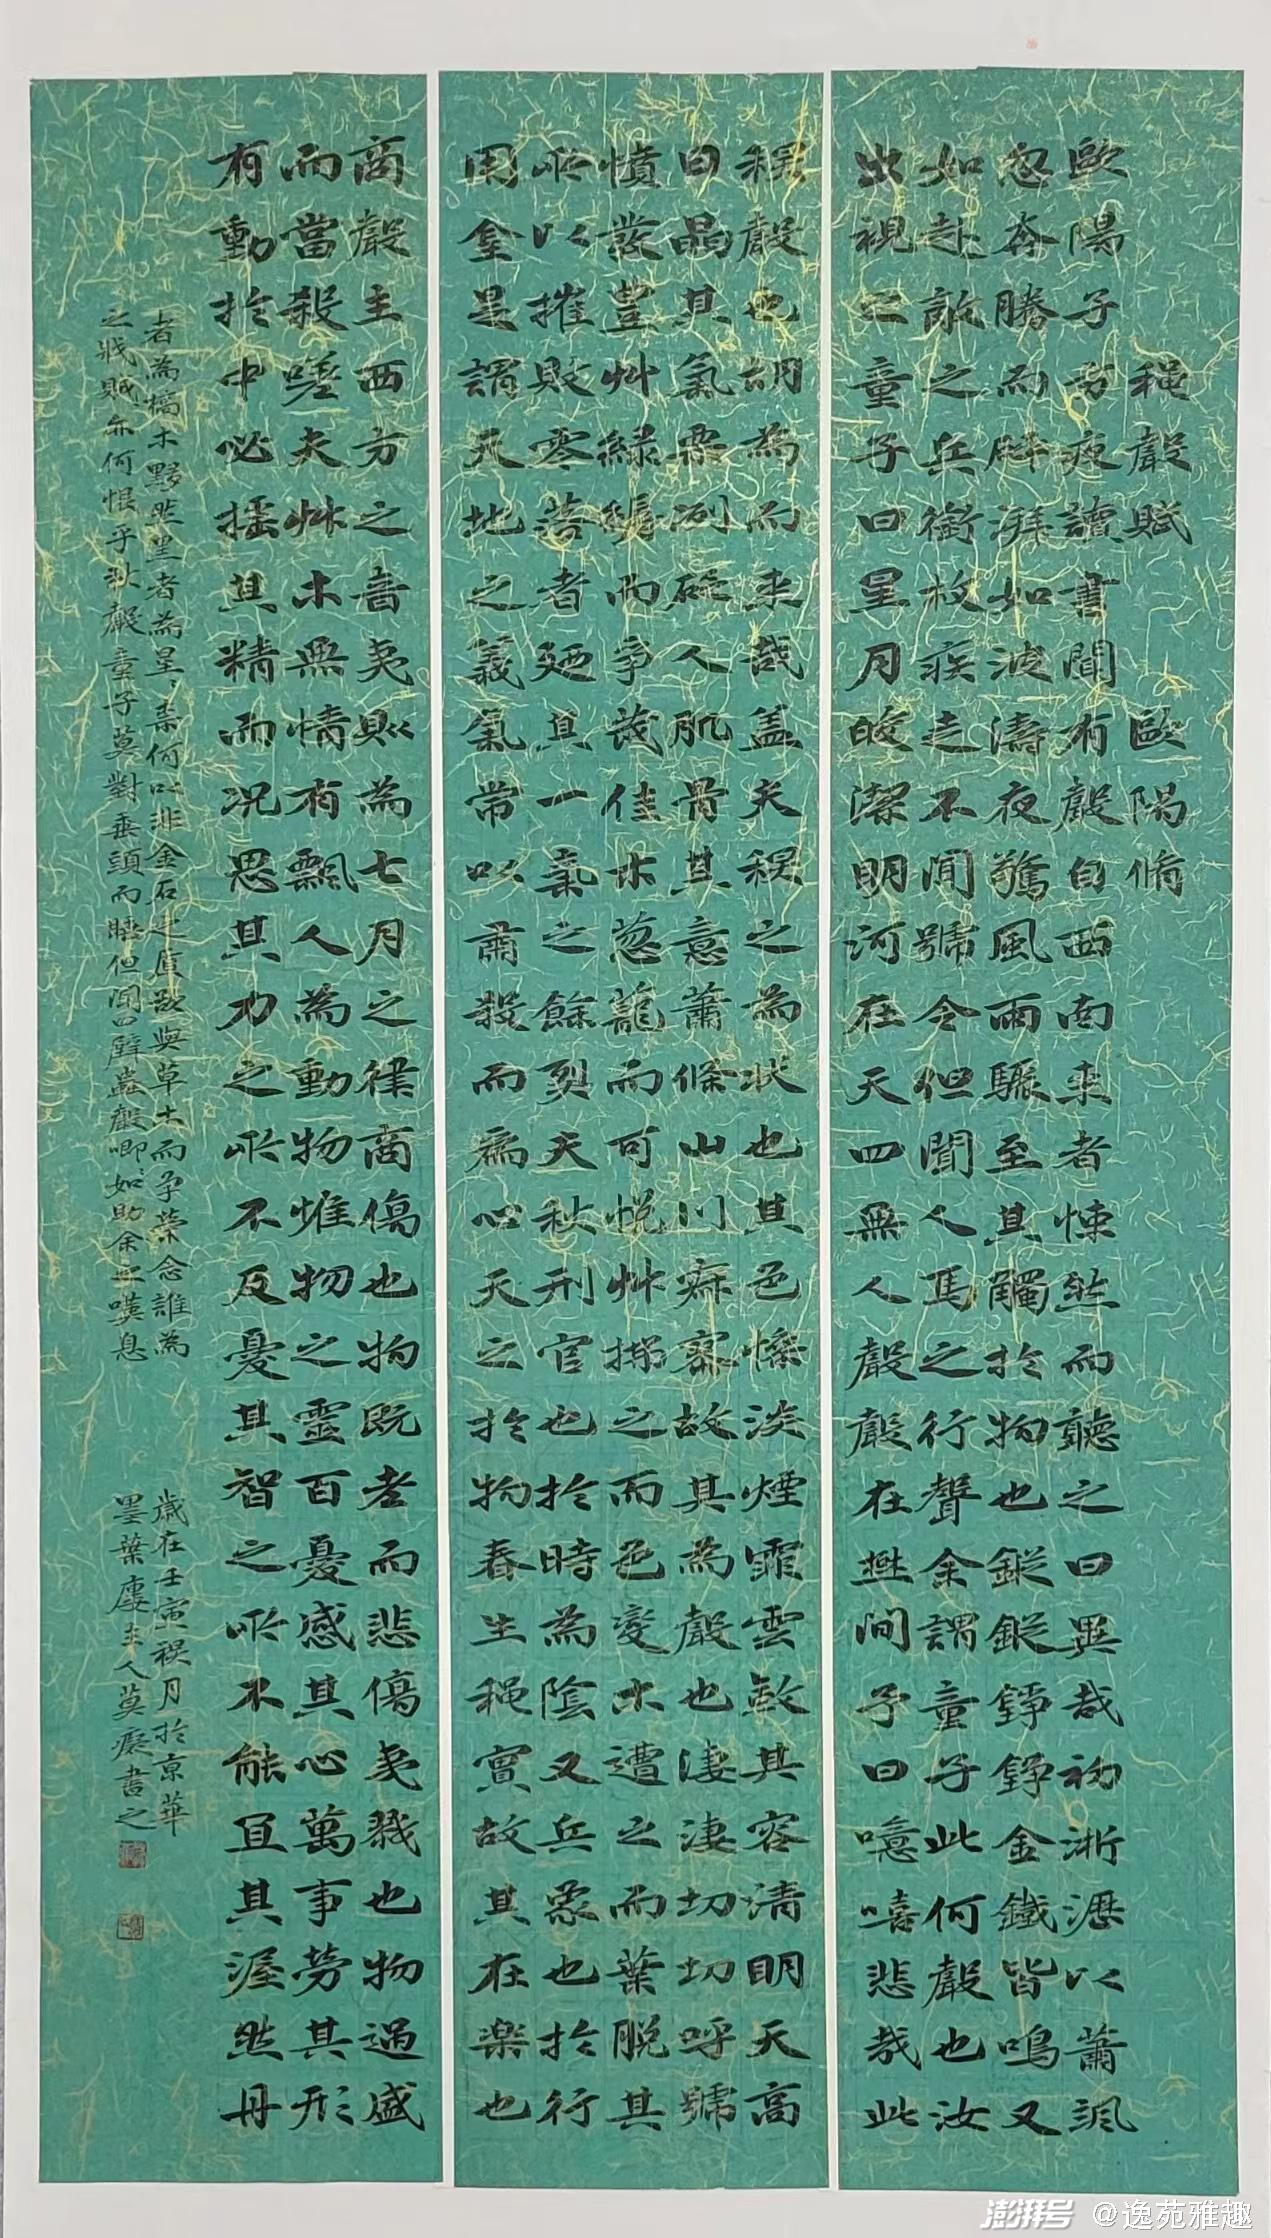 穐聲賦 歐陽脩
歐陽子方夜讀書聞有聲自西南來者悚然而聽之曰異哉初淅瀝以蕭颯
忽奔騰而砰湃如波濤夜驚風雨驟至其觸於物也鏦鏦錚錚金鐵皆鳴又
如赴敵之兵銜枚疾走不聞號令但聞人馬之行聲余謂童子此何聲也汝
出視之童子曰星月皎潔明河在天四無人聲聲在樹間予曰噫嘻悲哉此
穐聲也胡為而來哉蓋夫穐之為狀也其色慘淡煙霏雲斂其容清明天高
日晶其氣栗冽砭人肌骨其意蕭條山川寂寥故其為聲也淒淒切切呼號
憤發豐艸綠縟而爭茂佳木蔥蘢而可悅艸拂之而色變木遭之而葉脫其
所以摧敗零落者廼其一氣之餘烈夫秋刑官也於時為陰又兵象也於行
用金是謂天地之義氣常以肅殺而為心天之於物春生穐實故其在樂也
商聲主西方之音夷則為七月之律商傷也物既老而悲傷夷戮也物過盛
而當殺嗟夫艸木無情有飄人為動物惟物之靈百憂感其心萬事勞其形
有動於中必搖其精而況思其力之所不及憂其智之所不能宜其渥然丹
者為槁木黟然黑者為星〻柰何以非金石之質欲與草木而爭榮念誰為
之戕賊亦何恨乎秋聲童子莫對垂頭而睡但聞四壁蟲聲唧〻如助余之嘆息
歲在壬寅穐月於京華
墨葉廔主人莫癡書之
澎湃号 @逸苑雅趣